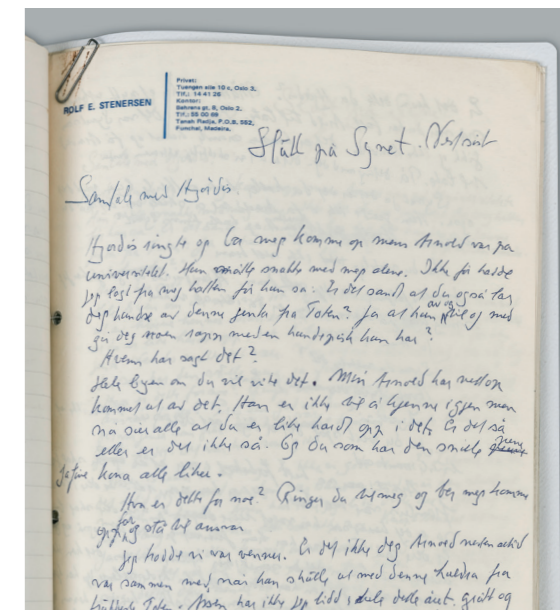 ROLF E. STENERSEN
Privat:
Tuengen alle 10 c, Oslo 3.
Tlf.: 14 41 26
Kontor:
Behrens gt. 8, Oslo 2.
Tlf.: 55 00 69
Tanah Radja, P.O.B. 552,
Funchal, Madeira.
Stall på Synet.
Samtale med Hjørdis
Hjørdis ringte og ba meg komme op mens Arnold var på
universitetet. Hun måtte snakke med meg alene. Ikke før hadde
jeg lagt fra meg hatten før hun sa: Er det sandt at du også lar
deg hundse av denne jenta fra Toten? Ja at hun av og til og med
gir deg noen rapp med en hundepisk hun har?
Hvem har sagt det?
Hele byen om du vil vite det. Min Arnold har nettop
kommet ut av det. Han er ikke til å kjenne igjen men
nå sier alle at du er like hardt opp i det. Er det så
eller er det ikke så. Og du som har den snille
kona alle liker.
Hva er dette for noe? Ringer du til meg og ber meg komme
opp for å stå til ansvar
Jeg trodde vi var venner. Er det ikke deg Arnold
var sammen med når han skulle ut med denne huldra fra
Toten. Assen har ikke jeg lidd